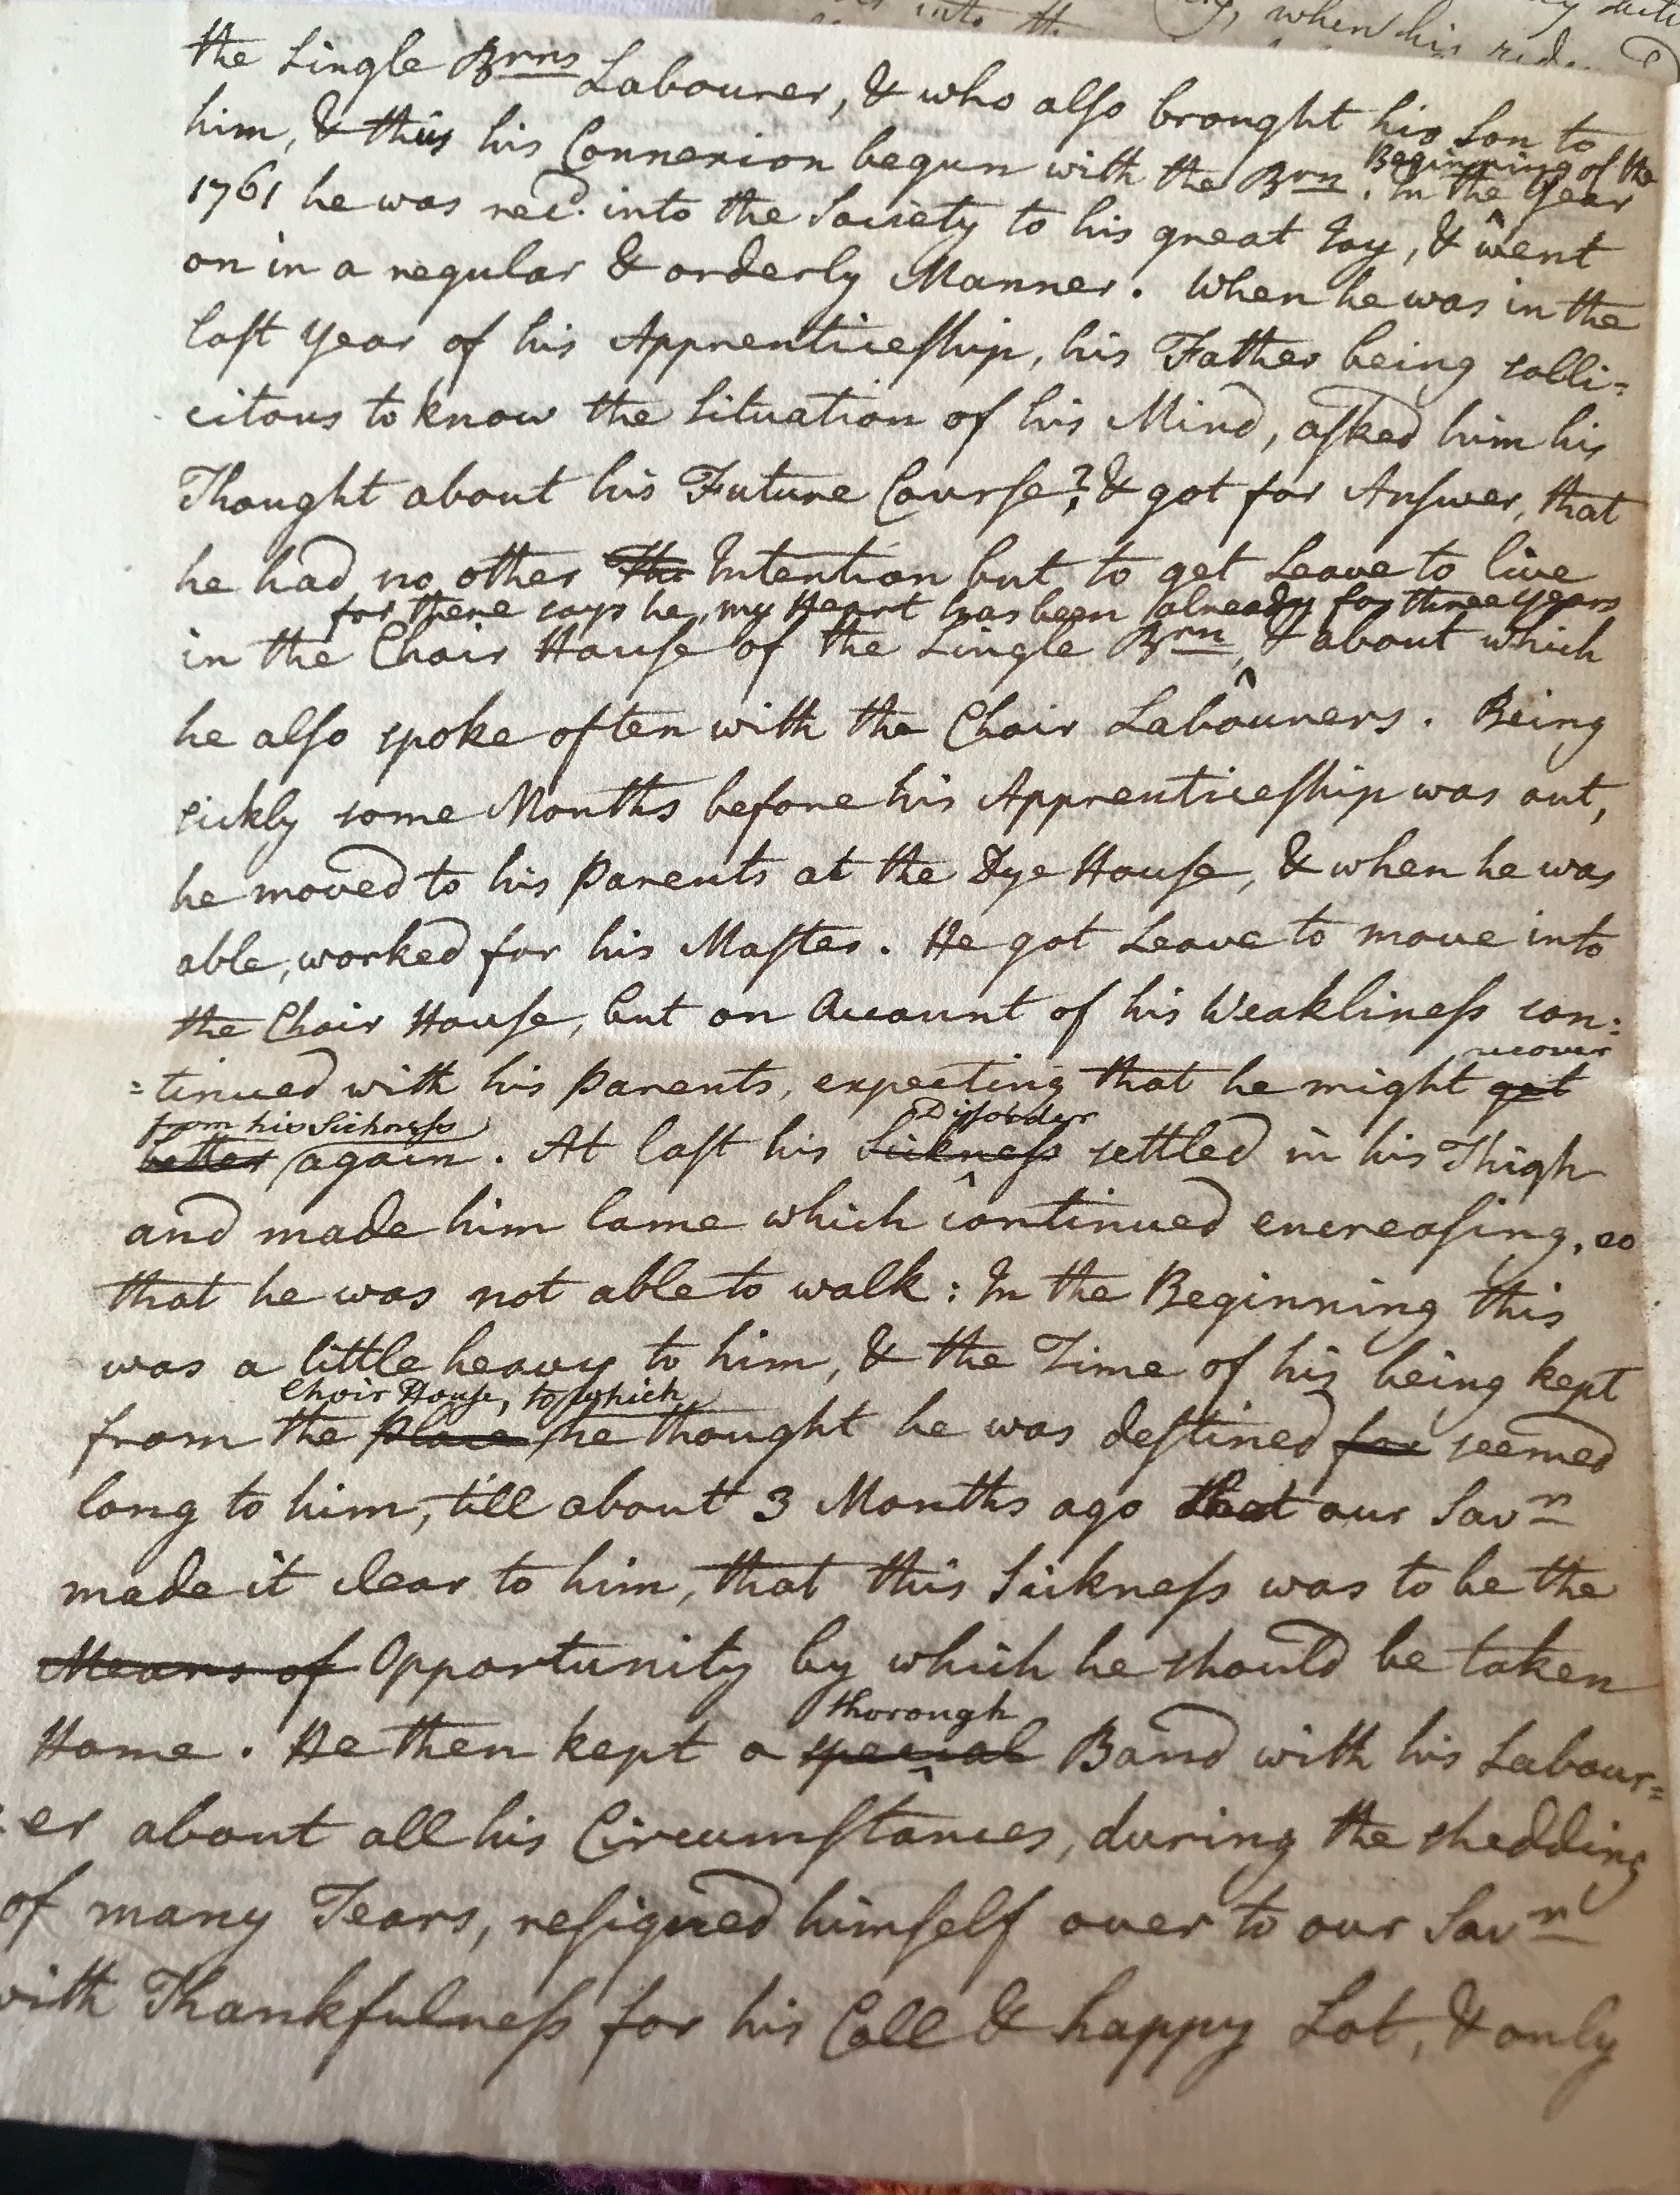 into th when his
the Single Brns Labourer, & who also brought his Son to
him, & thus his Connexion begun with the Brn. In the Year
Beginning of the
1761 he was rec.d into the Society to his great Joy, & went
on in a regular & orderly Manner. When he was in the
last Year of his Apprenticeship, his Father being solli=
citous to know the Situation of his Mind, asked him his
Thought about his Future Course? & got for Answer, that
he had no other Tho Intention but to get Leave to live
for there says he, my Heart has been already for three years
in the Choir House of the Single Brn, & about which
he also spoke often with the Choir Labourers. Being
sickly some Months before his Apprenticeship was out,
he moved to his Parents at the Dye House, & when he was
able, worked for his Master. He got Leave to move into
the Choir House, but on Account of his Weakliness con:
=tinued with his Parents, expecting that he might get
recover
from his Sickness
better again. At last his Sickness settled in his Thigh
Disorder
and made him lame which continued encreasing, so
that he was not able to walk: In the Beginning this
was a little heavy to him, & the Time of his being kept
Choir House, to which
from the place he thought he was destined for seemed
long to him, till about 3 Months ago that our Savr
made it clear to him, that this Sickness was to be the
Means of Opportunity by which he should be taken
thorough
Home. He then kept a special Band with his Labour=
:er about all his Circumstances, during the shedding
of many Tears, resigned himself over to our Savr
with Thankfulness for his Call & happy Lot, & only